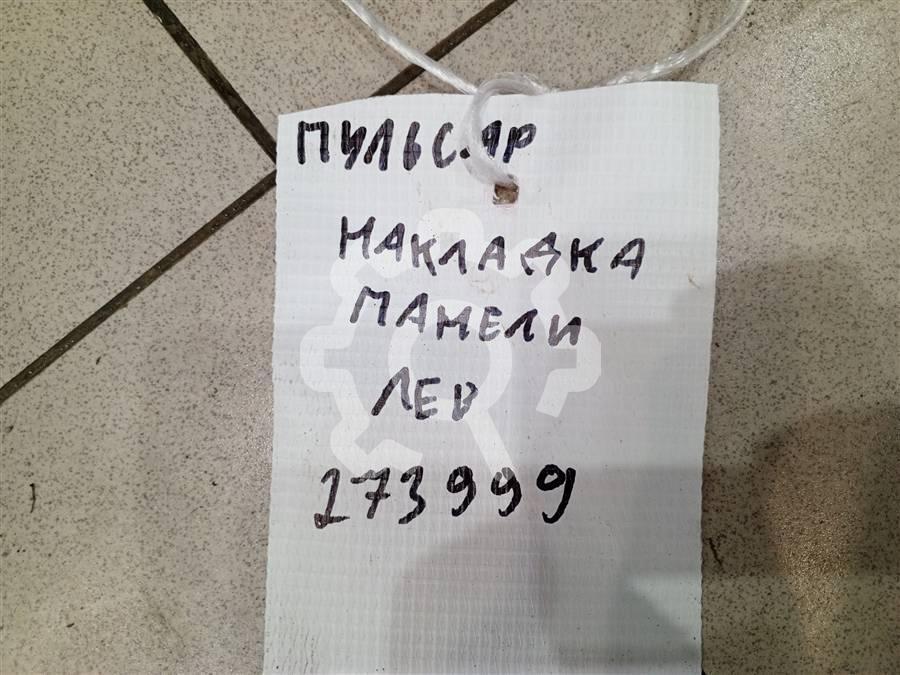 ПУЛЬСАР
НАКЛАДКА
ПАНЕЛИ
ЛЕВ
273999